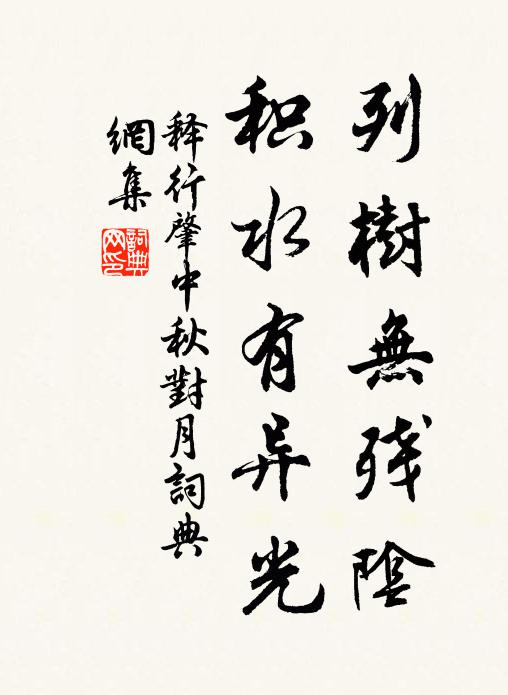 列樹無残陰
积水有异光
释行肇中秋對月詞典
網集
詞典
网印